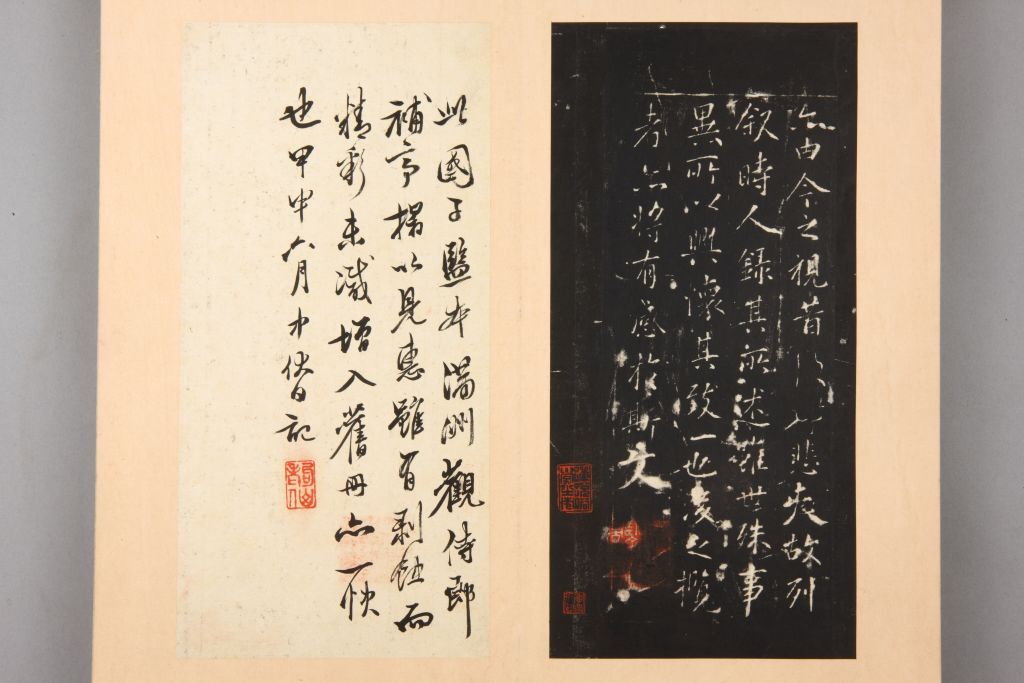 亦由今之視昔
悲夫故列
叙時人錄其所述雖世殊事
異所以興懷其致一也後之攬
者亦將有感於斯文
此國子監本滿洲觀侍郎
補亭搨以見惠雖有剥蝕而
精彩未減增入舊冊亦一快
也甲申六月
記